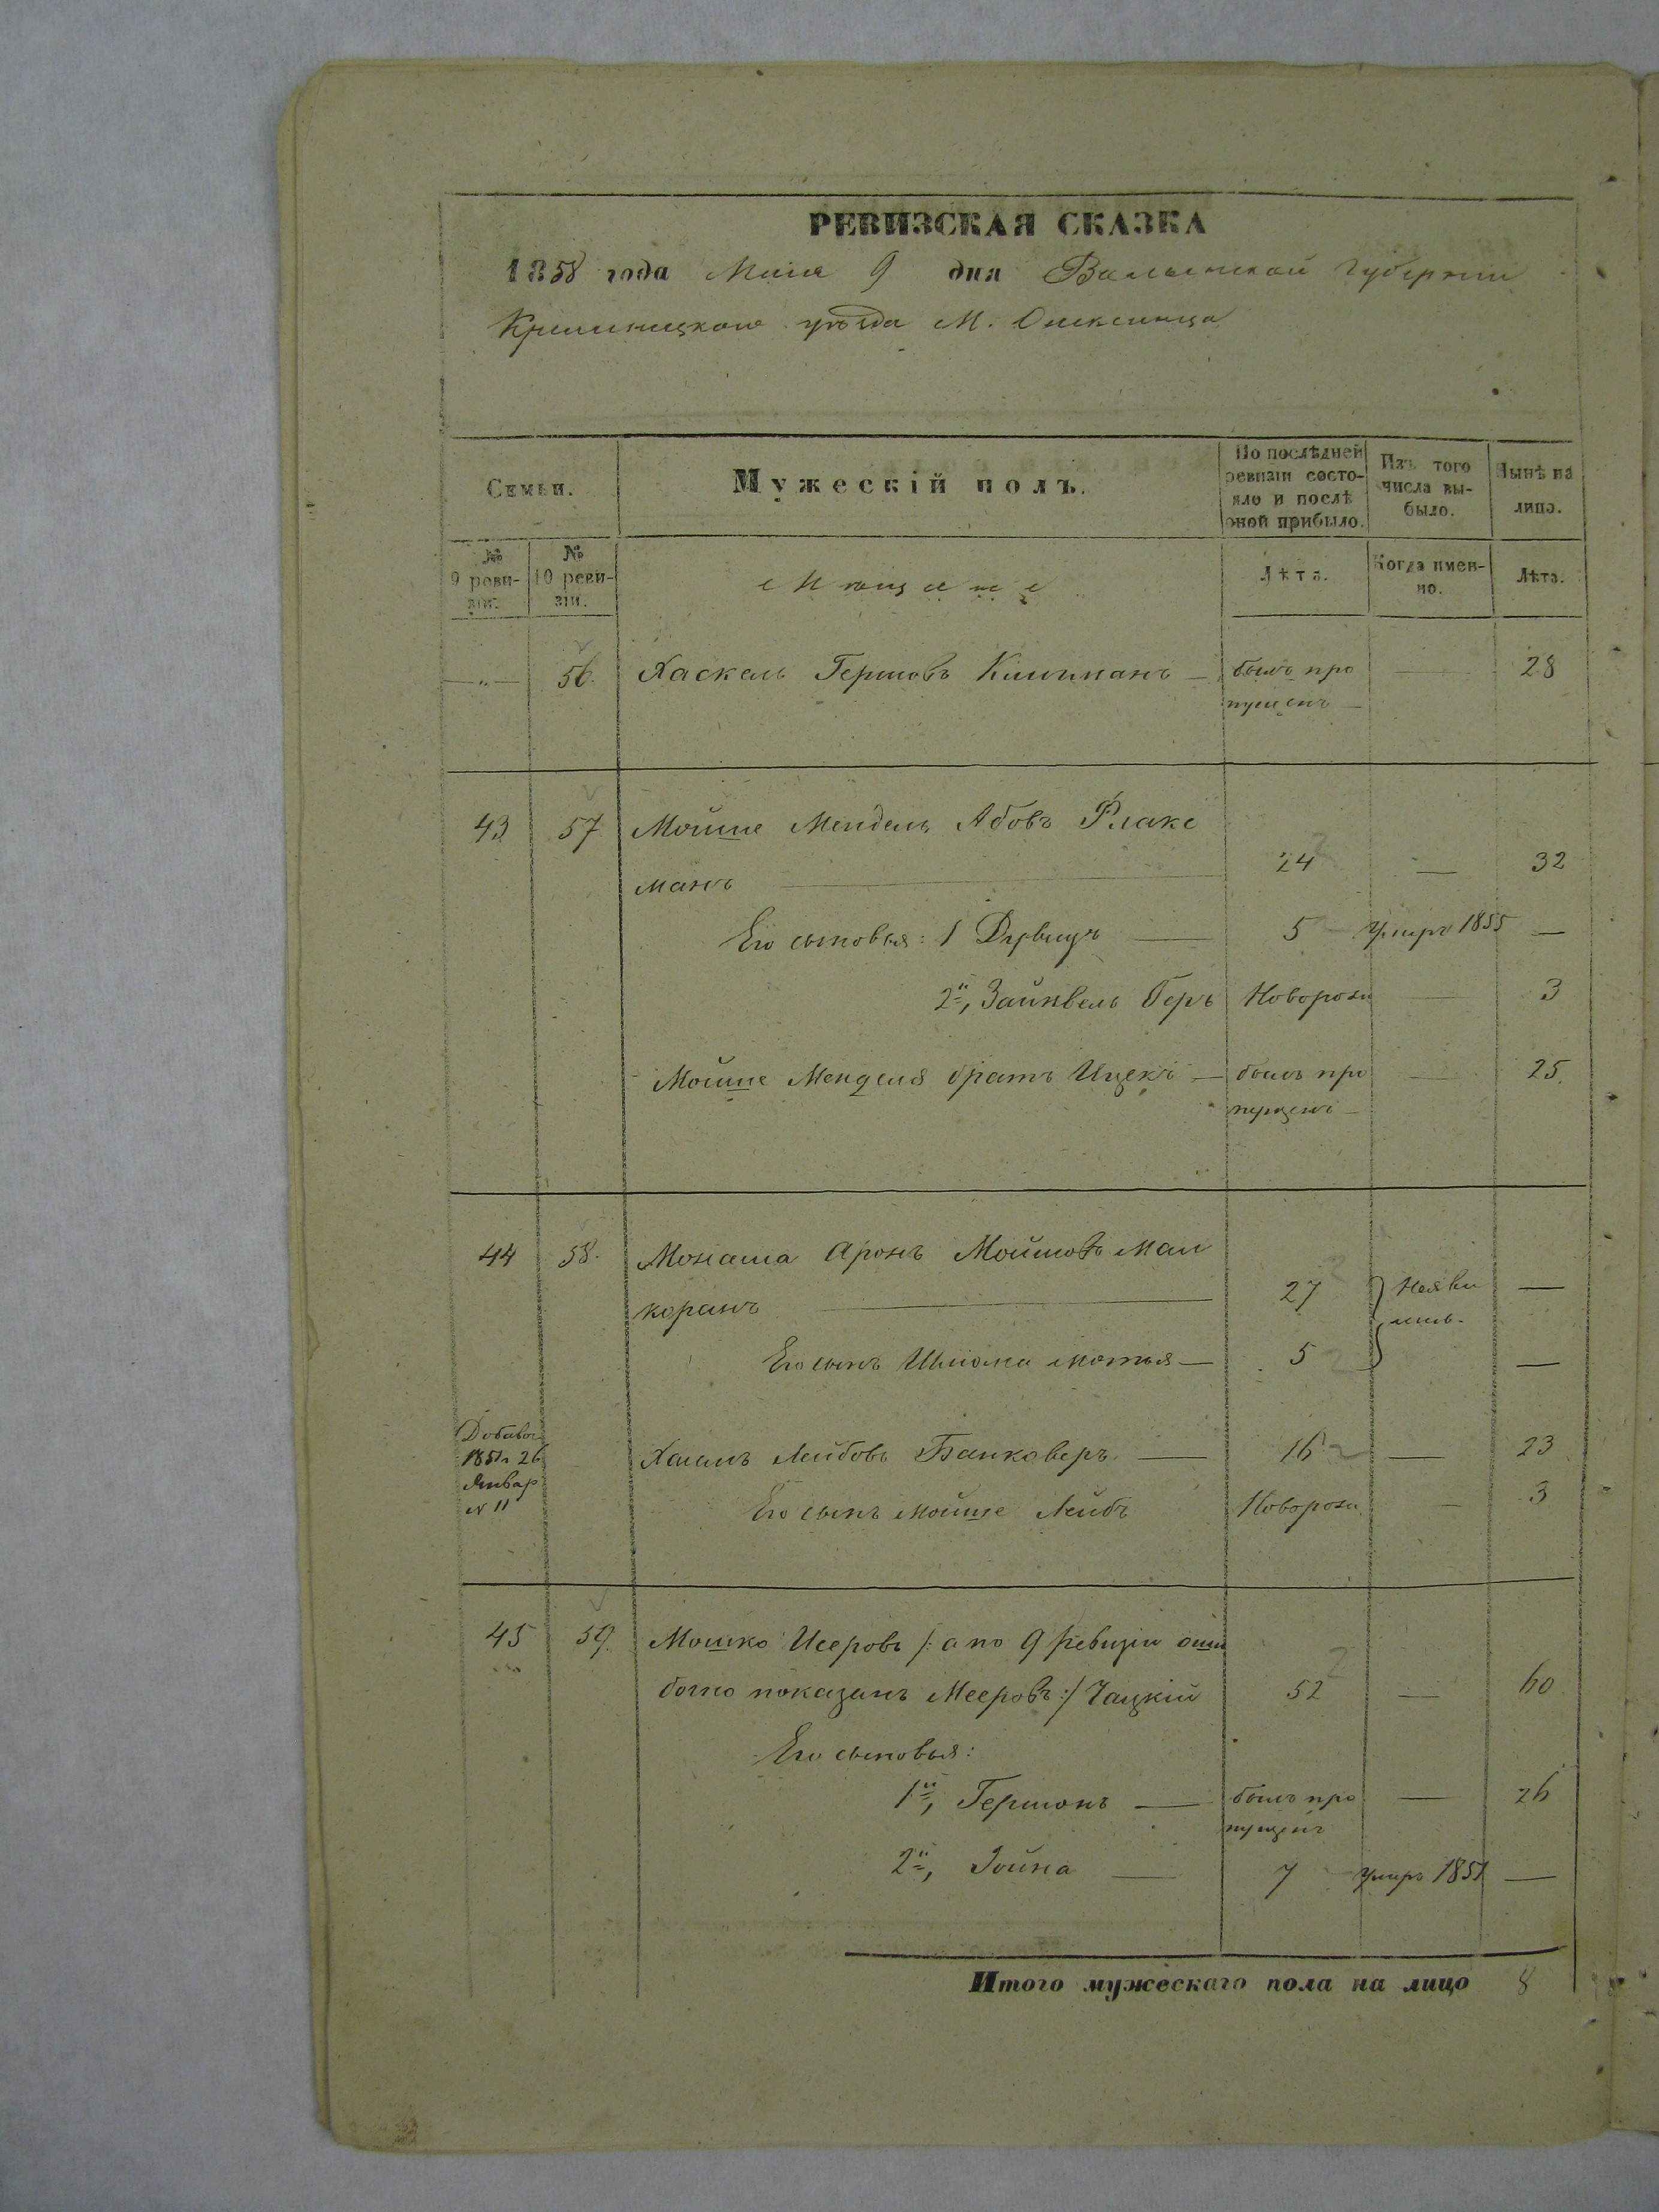 РЕВИЗСКАЯ СКАЗКА
1858 года Маія 9 дня Волынской губерніи
Кременецкаго уѣзда М. Олексинца
Семьи.
Мужескій полъ.
По послѣдней ревизіи состояло и послѣ оной прибыло.
Изъ того числа выбыло.
Нынѣ на лицо.
№ 9 ревизіи.
№ 10 ревизіи.
Мѣщане
Лѣта.
Когда именно.
Лѣта.
—„— 56. Хаскель Гершовъ — былъ про — 28
пущенъ —
43 57 Мойше Мендель Абовъ Флакс
манъ — 24 — 32
Его сыновья: 1 — 5 Умеръ 1855 —
2й, Зайнвель Беръ Новорож — 3
Мойше Менделя братъ Ицекъ — былъ про — 25.
пущенъ —
44 58. Монаша Аронъ Мойшовъ
— 27 Неяви —
лись.
Его сынъ Шлома мотья — 5 —
Добавоч
1851 26
Январ
N 11
Хаимъ Лейбовъ Банковеръ — 16 — 23
Его сынъ мойше Лейбъ Новорож. — 3
45 59. Мошко Исеровъ /: а по 9 ревизіи оши
бочно показанъ Мееровъ :/ Чацкій 52 — 60
Его сыновья:
1й, Гершонъ — былъ про — 26
пущенъ
2й, Іойна — 7 Умеръ 1851 —
Итого мужескаго пола на лицо 8